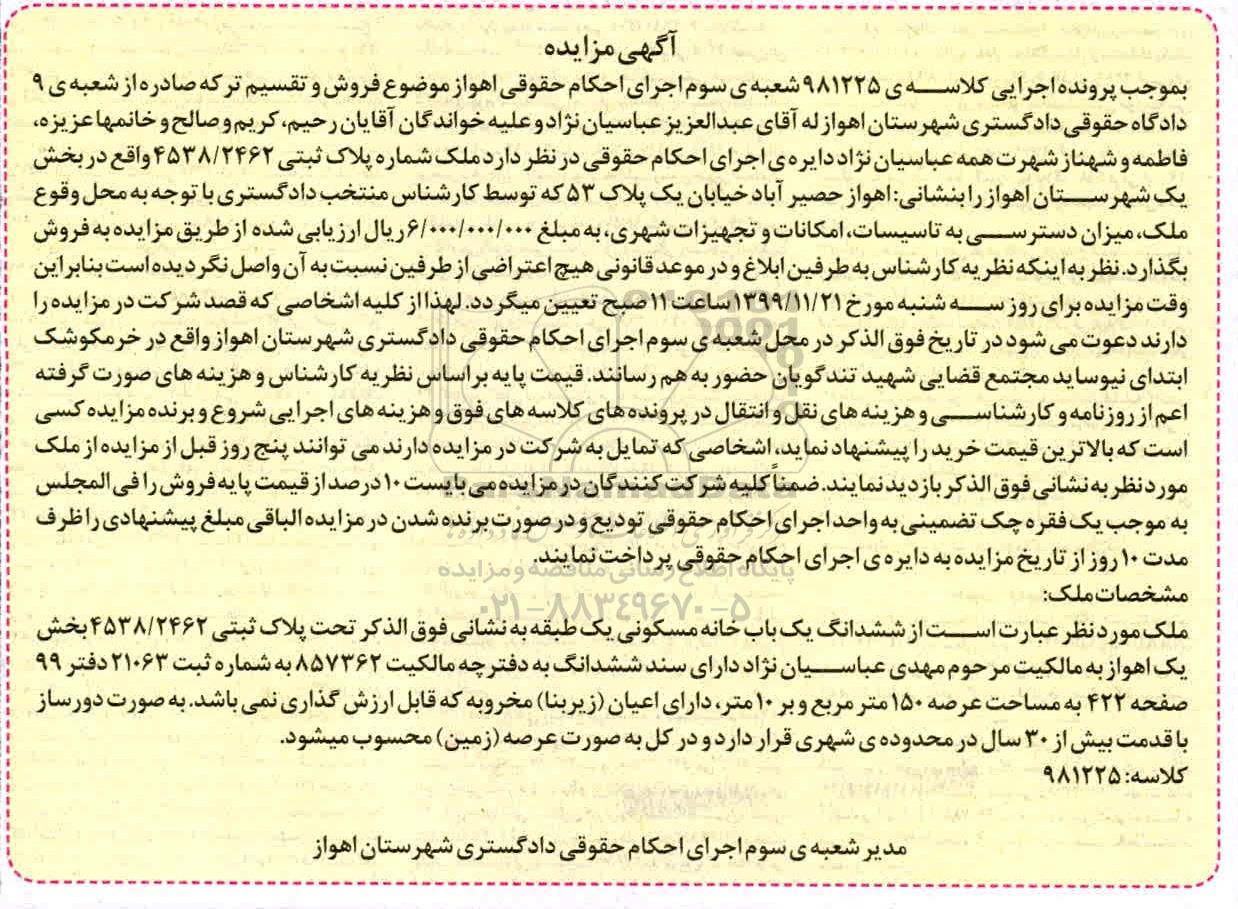 آگهی مزایده
بموجب پرونده اجرایی کلاسه ی ۹۸۱۲۲۵ شعبه ی سوم اجرای احکام حقوقی اهواز موضوع فروش و تقسیم ترکه صادره از شعبه ی ۹
دادگاه حقوقی دادگستری شهرستان اهواز له آقای عبدالعزیز عباسیان نژاد و علیه خواندگان آقایان رحیم، کریم و صالح و خانمها عزیزه،
فاطمه و شهناز شهرت همه عباسیان نژاد دایره ی اجرای احکام حقوقی در نظر دارد ملک شماره پلاک ثبتی ۴۵۳۸/۲۴۶۲ واقع در بخش
یک شهرستان اهواز را بنشانی: اهواز حصیر آباد خیابان یک پلاک ۵۳ که توسط کارشناس منتخب دادگستری با توجه به محل وقوع
ملک، میزان دسترسی به تاسیسات، امکانات و تجهیزات شهری، به مبلغ ۶/۰۰۰/۰۰۰/۰۰۰ ریال ارزیابی شده از طریق مزایده به فروش
بگذارد. نظر به اینکه نظریه کارشناس به طرفین ابلاغ و در موعد قانونی هیچ اعتراضی از طرفین نسبت به آن واصل نگردیده است بنابراین
وقت مزایده برای روز سه شنبه مورخ ۱۳۹۹/۱۱/۲۱ ساعت ۱۱ صبح تعیین میگردد. لهذا از کلیه اشخاصی که قصد شرکت در مزایده را
دارند دعوت می شود در تاریخ فوق الذکر در محل شعبه ی سوم اجرای احکام حقوقی دادگستری شهرستان اهواز واقع در خرمکوشک
ابتدای نیوساید مجتمع قضایی شهید تندگویان حضور به هم رسانند. قیمت پایه براساس نظریه کارشناس و هزینه های صورت گرفته
اعم از روزنامه و کارشناسی و هزینه های نقل و انتقال در پرونده های کلاسه های فوق و هزینه های اجرایی شروع و برنده مزایده کسی
است که بالاترین قیمت خرید را پیشنهاد نماید، اشخاصی که تمایل به شرکت در مزایده دارند می توانند پنج روز قبل از مزایده از ملک
مورد نظر به نشانی فوق الذکر بازدید نمایند. ضمناً کلیه شرکت کنندگان در مزایده می بایست ۱۰ درصد از قیمت پایه فروش را فی المجلس
به موجب یک فقره چک تضمینی به واحد اجرای احکام حقوقی تودیع و در صورت برنده شدن در مزایده الباقی مبلغ پیشنهادی را ظرف
مدت ۱۰ روز از تاریخ مزایده به دایره ی اجرای احکام حقوقی پرداخت نمایند.
پایگاه اطلاع رسانی مناقصه و مزایده
مشخصات ملک:
۰۲۱-۸۸۳۴۹۶۷۰-۵
ملک مورد نظر عبارت است از ششدانگ یک باب خانه مسکونی یک طبقه به نشانی فوق الذکر تحت پلاک ثبتی ۴۵۳۸/۲۴۶۲ بخش
یک اهواز به مالکیت مرحوم مهدی عباسیان نژاد دارای سند ششدانگ به دفترچه مالکیت ۸۵۷۳۶۲ به شماره ثبت ۲۱۰۶۳ دفتر ۹۹
صفحه ۴۲۲ به مساحت عرصه ۱۵۰ متر مربع و بر ۱۰ متر، دارای اعیان (زیربنا) مخروبه که قابل ارزش گذاری نمی باشد. به صورت دورساز
با قدمت بیش از ۳۰ سال در محدوده ی شهری قرار دارد و در کل به صورت عرصه (زمین) محسوب میشود.
کلاسه: ۹۸۱۲۲۵
مدیر شعبه ی سوم اجرای احکام حقوقی دادگستری شهرستان اهواز